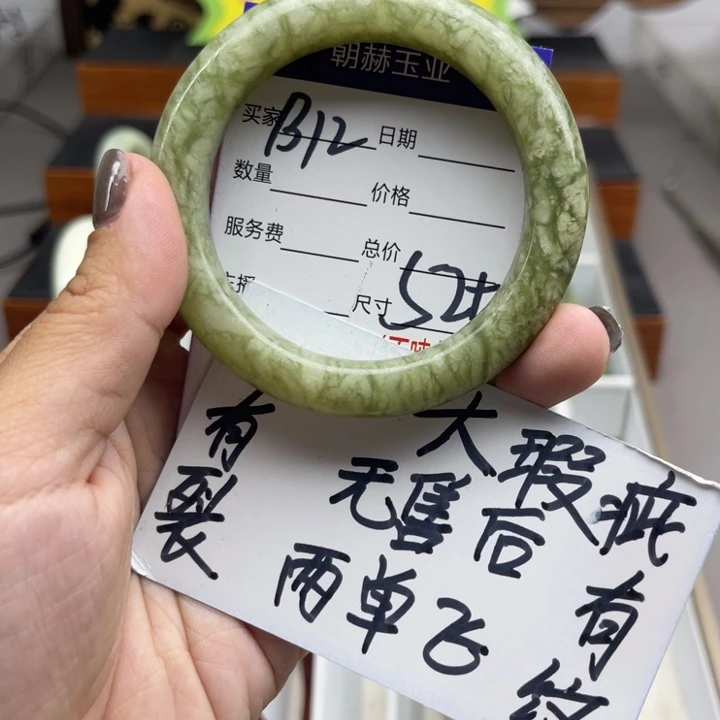 朝赫玉业
买家 B12 日期
数量 价格
服务费 总价
主播 尺寸 52+
有裂
大瑕疵
无售后
有纹
两单飞